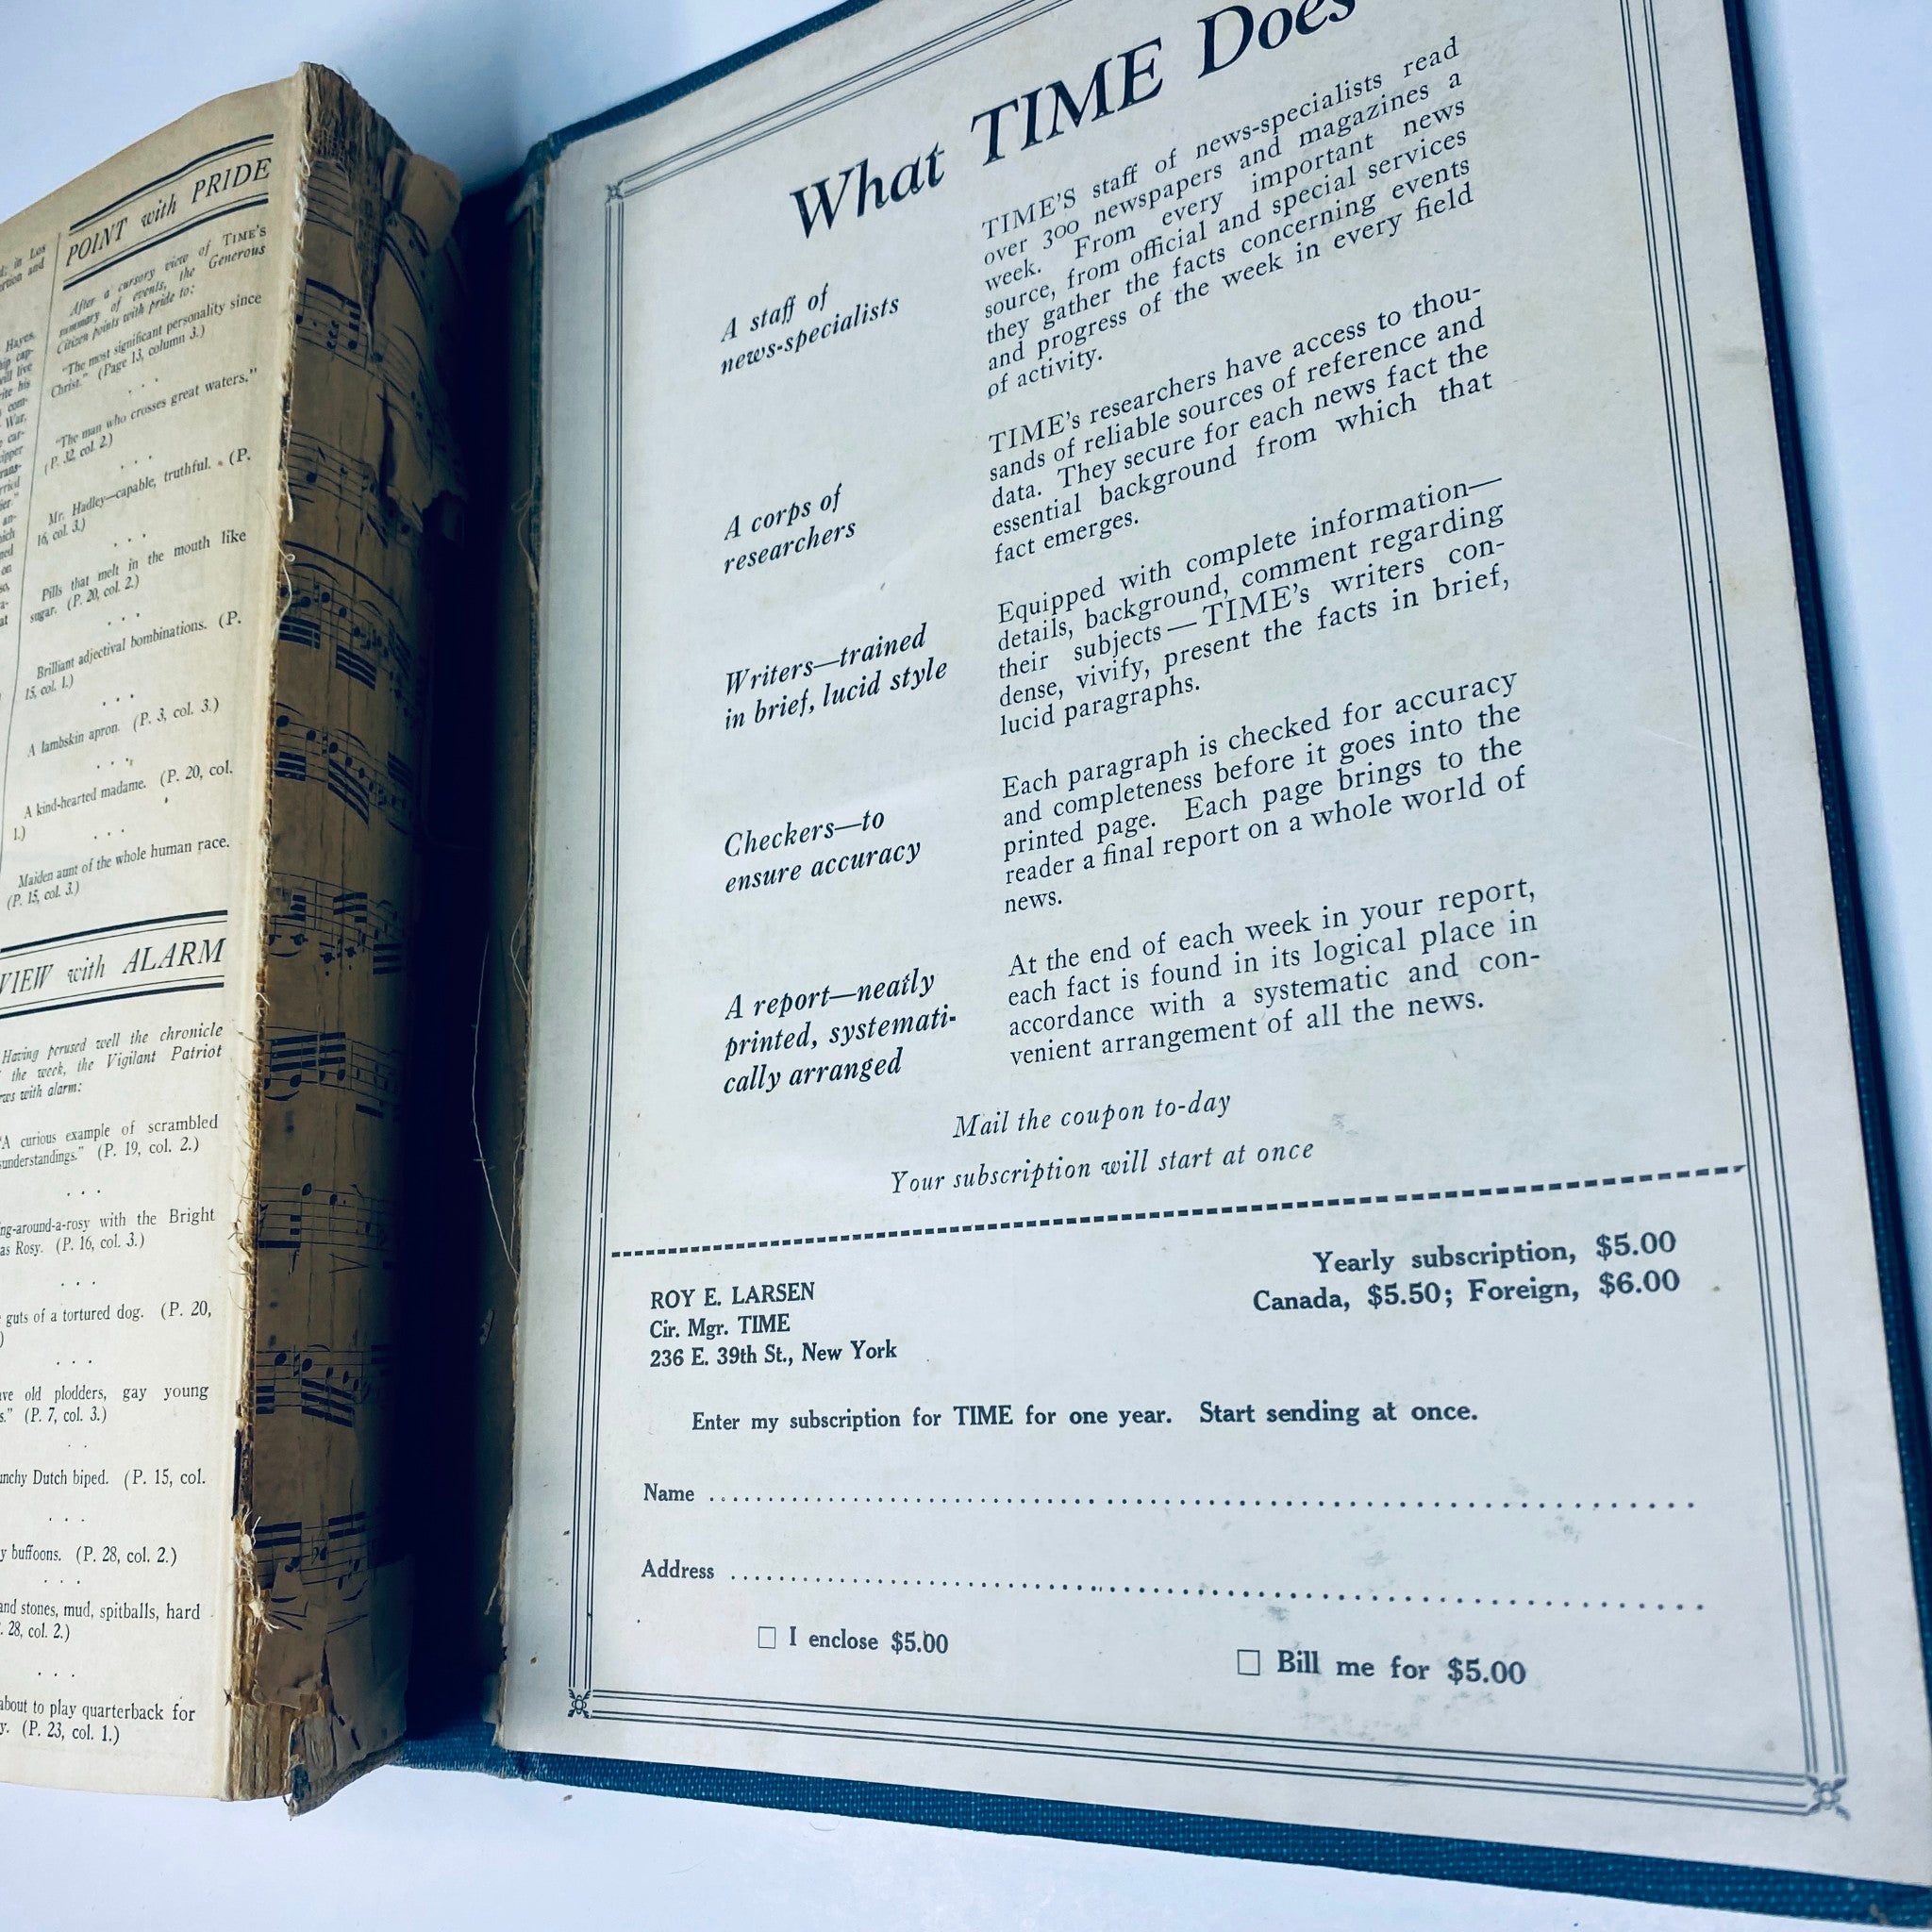 d; in Los
rtion and
Hayes,
hip cap-
will live
rite his
com-
War,
car-
ipper
rans-
rried
ier."
an-
hich
ned
on
so,
at
POINT with PRIDE
After a cursory view of TIME'S
summary of events, the Generous
Citizen points with pride to:
"The most significant personality since
Christ." (Page 13, column 3.)
. . .
"The man who crosses great waters."
(P. 32, col. 2.)
. . .
Mr. Hadley—capable, truthful. (P.
16, col. 3.)
. . .
Pills that melt in the mouth like
sugar. (P. 20, col. 2.)
. . .
Brilliant adjectival bombinations. (P.
15, col. 1.)
. . .
A lambskin apron. (P. 3, col. 3.)
. . .
A kind-hearted madame. (P. 20, col.
1.)
. . .
Maiden aunt of the whole human race.
(P. 15, col. 3.)
VIEW with ALARM
Having perused well the chronicle
the week, the Vigilant Patriot
ws with alarm:
"A curious example of scrambled
sunderstandings." (P. 19, col. 2.)
. . .
ng-around-a-rosy with the Bright
as Rosy. (P. 16, col. 3.)
. . .
guts of a tortured dog. (P. 20,
)
. . .
ve old plodders, gay young
s." (P. 7, col. 3.)
. .
unchy Dutch biped. (P. 15, col.
. . .
y buffoons. (P. 28, col. 2.)
. . .
and stones, mud, spitballs, hard
. 28, col. 2.)
. . .
about to play quarterback for
y. (P. 23, col. 1.)
What TIME Does
A staff of
news-specialists
TIME'S staff of news-specialists read
over 300 newspapers and magazines a
week. From every important news
source, from official and special services
they gather the facts concerning events
and progress of the week in every field
of activity.
A corps of
researchers
TIME's researchers have access to thou-
sands of reliable sources of reference and
data. They secure for each news fact the
essential background from which that
fact emerges.
Writers—trained
in brief, lucid style
Equipped with complete information—
details, background, comment regarding
their subjects — TIME's writers con-
dense, vivify, present the facts in brief,
lucid paragraphs.
Checkers—to
ensure accuracy
Each paragraph is checked for accuracy
and completeness before it goes into the
printed page. Each page brings to the
reader a final report on a whole world of
news.
A report—neatly
printed, systemati-
cally arranged
At the end of each week in your report,
each fact is found in its logical place in
accordance with a systematic and con-
venient arrangement of all the news.
Mail the coupon to-day
Your subscription will start at once
ROY E. LARSEN
Cir. Mgr. TIME
236 E. 39th St., New York
Yearly subscription, $5.00
Canada, $5.50; Foreign, $6.00
Enter my subscription for TIME for one year. Start sending at once.
Name
Address
I enclose $5.00
Bill me for $5.00